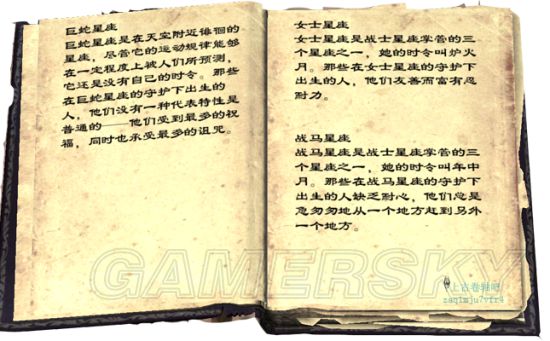 巨蛇星座
巨蛇星座是在天空附近徘徊的
星座，尽管它的运动规律能够
在一定程度上被人们所预测，
它还是没有自己的时令。那些
在巨蛇星座的守护下出生的
人，他们没有一种代表特性是
普通的——他们受到最多的祝
福，同时也承受最多的诅咒。
女士星座
女士星座是战士星座掌管的三
个星座之一，她的时令叫炉火
月。那些在女士星座的守护下
出生的人，他们友善而富有忍
耐力。
战马星座
战马星座是战士星座掌管的三
个星座之一，她的时令叫年中
月。那些在战马星座的守护下
出生的人缺乏耐心，他们总是
急匆匆地从一个地方赶到另外
一个地方。
GAMERSKY
上古卷轴吧
zaq1mju7vfr4